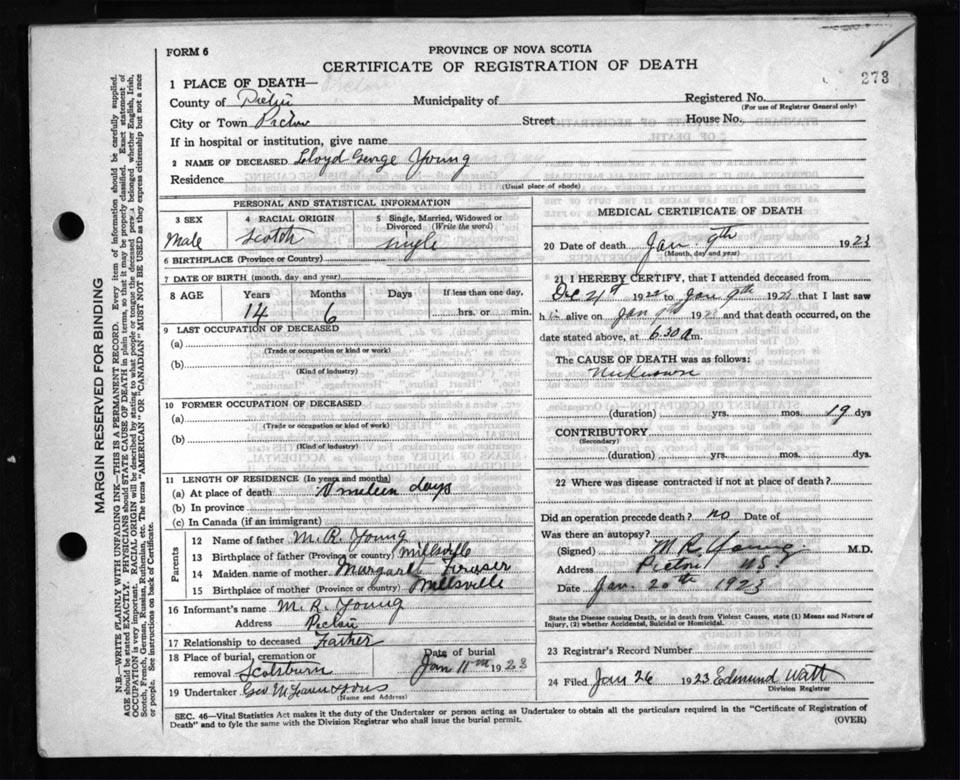 FORM 6
PROVINCE OF NOVA SCOTIA
CERTIFICATE OF REGISTRATION OF DEATH
273
1 PLACE OF DEATH—
County of Pictou Municipality of Registered No.
(For use of Registrar General only)
City or Town Pictou Street House No.
If in hospital or institution, give name
2 NAME OF DECEASED Lloyd George Young
Residence
(Usual place of abode)
PERSONAL AND STATISTICAL INFORMATION
3 SEX 4 RACIAL ORIGIN 5 Single, Married, Widowed or Divorced (Write the word)
Male Scotch single
6 BIRTHPLACE (Province or Country)
7 DATE OF BIRTH (month, day and year)
8 AGE Years Months Days If less than one day,
14 6 hrs. or min.
9 LAST OCCUPATION OF DECEASED
(a)
(Trade or occupation or kind of work)
(b)
(Kind of industry)
10 FORMER OCCUPATION OF DECEASED
(a)
(Trade or occupation or kind of work)
(b)
(Kind of industry)
11 LENGTH OF RESIDENCE (In years and months)
(a) At place of death days
(b) In province
(c) In Canada (if an immigrant)
Parents
12 Name of father M. R. Young
13 Birthplace of father (Province or country) Millsville
14 Maiden name of mother Margaret Fraser
15 Birthplace of mother (Province or country) Millsville
16 Informant's name M. R. Young
Address Pictou
17 Relationship to deceased Father
18 Place of burial, cremation or removal Scotsburn Date of burial Jan 11th 1923
19 Undertaker Geo M & Sons
(Name and Address)
MEDICAL CERTIFICATE OF DEATH
20 Date of death Jan. 9th 1923
(Month, day and year)
21 I HEREBY CERTIFY, that I attended deceased from
Dec 19 to Jan 9th 1923 that I last saw
h alive on Jan 19 and that death occurred, on
date stated above, at 6.30 a m.
The CAUSE OF DEATH was as follows:
Unknown
(duration) yrs. mos. 19 dys
CONTRIBUTORY
(Secondary)
(duration) yrs. mos. dys.
22 Where was disease contracted if not at place of death?
Did an operation precede death? no Date of
Was there an autopsy?
(Signed) M R Young M.D.
Address Pictou NS
Date Jan. 20th 1923
State the Disease causing Death, or in death from Violent Causes, state (1) Means and Nature of
Injury, (2) whether Accidental, Suicidal or Homicidal.
23 Registrar's Record Number
24 Filed Jan 26 1923 Edmund Watt
Division Registrar
SEC. 46—Vital Statistics Act makes it the duty of the Undertaker or person acting as Undertaker to obtain all the particulars required in the "Certificate of Registration of
Death" and to fyle the same with the Division Registrar who shall issue the burial permit.
(OVER)
MARGIN RESERVED FOR BINDING
N.B.—WRITE PLAINLY WITH UNFADING INK—THIS IS A PERMANENT RECORD. Every item of information should be carefully supplied.
AGE should be stated EXACTLY. PHYSICIANS should STATE CAUSE OF DEATH in plain terms, so that it may be properly classified. Exact statement of
OCCUPATION is very important. RACIAL ORIGIN will be described by stating to what people or tongue the deceased person belonged whether English, Irish,
Scotch, French, German, Russian, Ruthenian, etc. The terms "AMERICAN" OR "CANADIAN" MUST NOT BE USED as they express citizenship but not a race
or people. See instructions on back of Certificate.